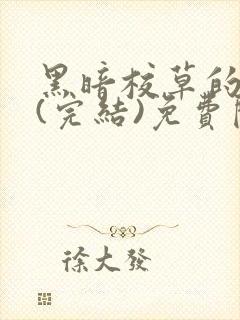 黑暗校草的
(完結)免費
徐大發